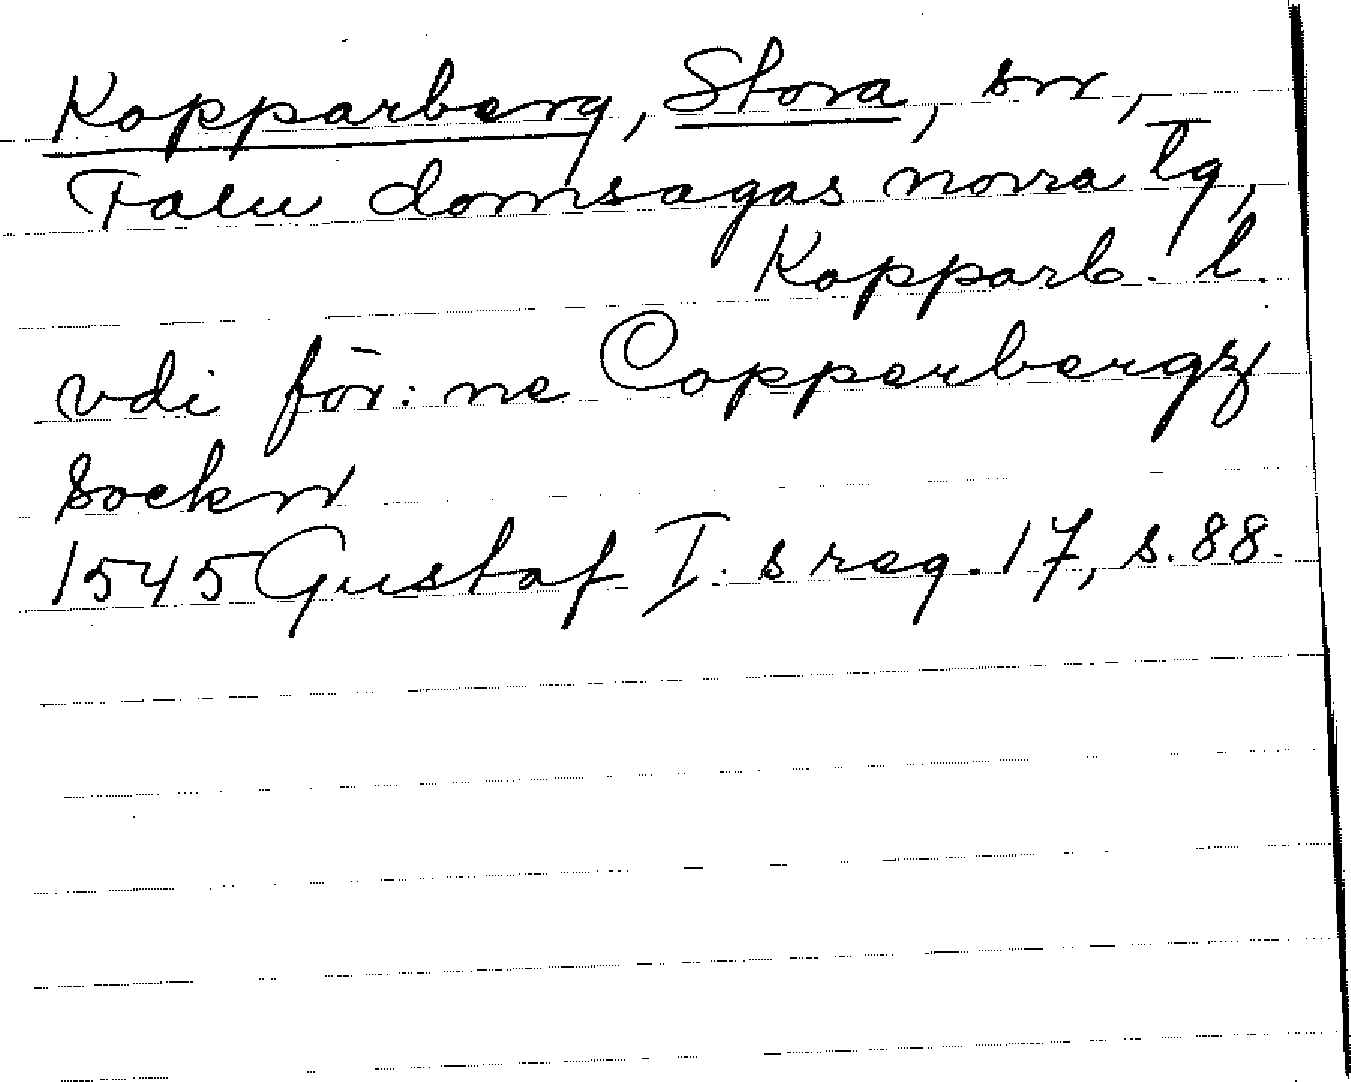 Kopparberg, Stora, sn,
Falu domsagas norra tg,
Kopparb. l.
vdi för: ne Copperbergz
Sockn
1545 Gustaf I:s reg. 17, s. 88.